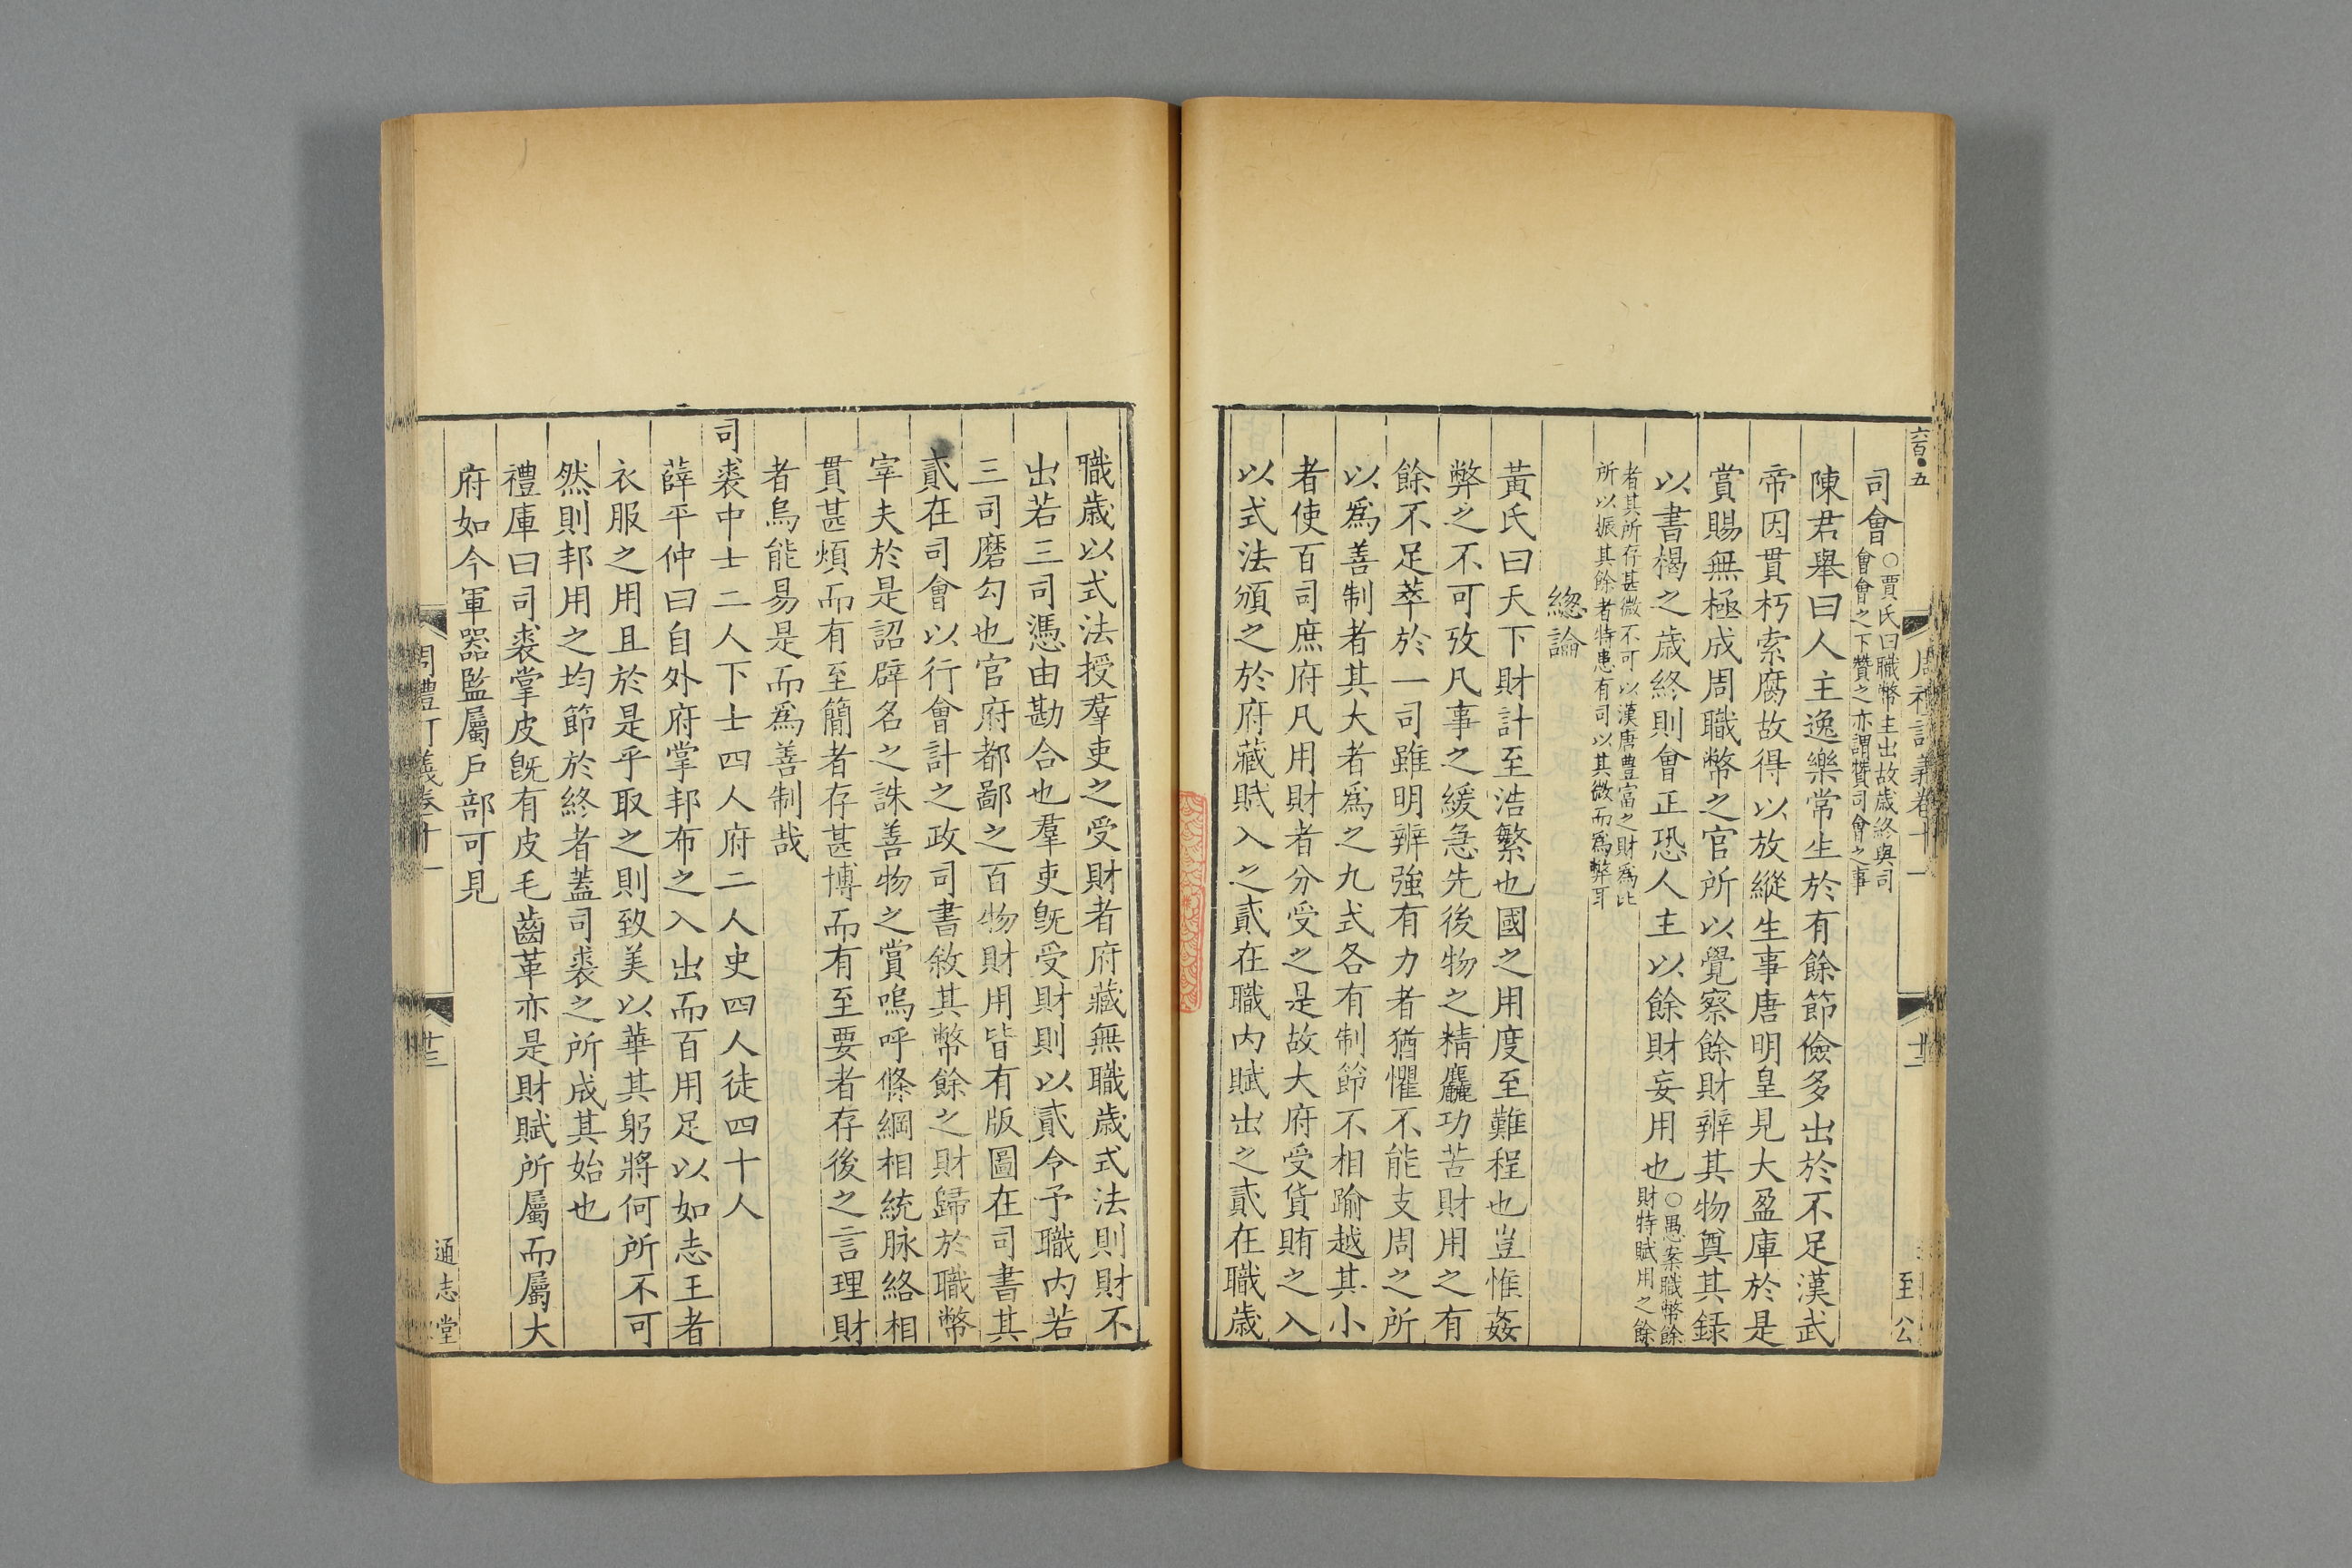 六百五
司會○賈氏曰職幣主出故歳終與司
會會之下贊之亦謂贊司會之事
陳君舉曰人主逸樂常生於有餘節儉多出於不足漢武
帝因貫朽索腐故得以放縱生事唐明皇見大盈庫於是
賞賜無極成周職幣之官所以覺察餘財辨其物奠其録
以書楬之歳終則會正恐人主以餘財妄用也○愚案職幣餘
財特賦用之餘
者其所存甚微不可以漢唐豊富之財爲比
所以振其餘者特患有司以其微而爲弊耳
緫論
黃氏曰天下財計至浩繁也國之用度至難程也豈惟姦
弊之不可攷凡事之緩急先後物之精麤功苦財用之有
餘不足萃於一司雖明辨強有力者猶懼不能支周之所
以爲善制者其大者爲之九式各有制節不相踰越其小
者使百司庶府凡用財者分受之是故大府受貨賄之入
以式法頒之於府藏賦入之貳在職内賦出之貳在職歳
職歳以式法授羣吏之受財者府藏無職歳式法則財不
出若三司憑由勘合也羣吏旣受財則以貳令予職内若
三司磨勾也官府都鄙之百物財用皆有版圖在司書其
貳在司會以行會計之政司書敘其幣餘之財歸於職幣
宰夫於是詔辟名之誅善物之賞嗚呼條綱相統脉絡相
貫甚煩而有至簡者存甚博而有至要者存後之言理財
者烏能易是而爲善制哉
司裘中士二人下士四人府二人史四人徒四十人
薛平仲曰自外府掌邦布之入出而百用足以如志王者
衣服之用且於是乎取之則致美以華其躬將何所不可
然則邦用之均節於終者蓋司裘之所成其始也
禮庫曰司裘掌皮旣有皮毛齒革亦是財賦所屬而屬大
府如今軍器監屬戶部可見
周禮訂義卷十一
十三
通志堂